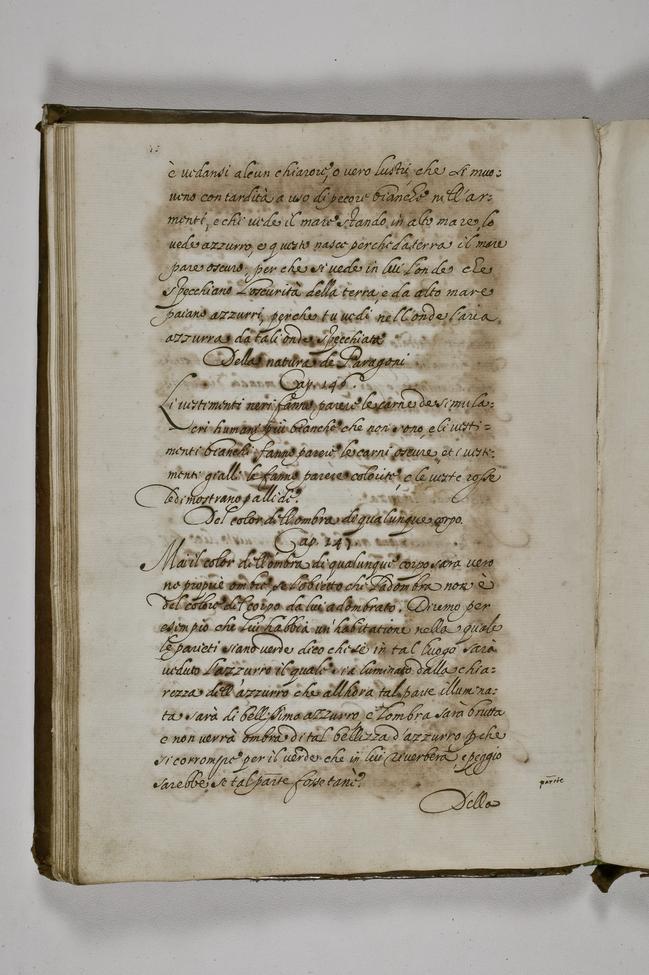 è vedansi alcun chiarore, o vero lustri che si muo=
veno con tardità a uso di pecore bianche nell'ar=
menti, e chi vede il mare stando in alto mare, lo
vede azzurro, e questo nasce perche da terra il mare
pare oscuro, per che si vede in lui l'onde che
specchiano l'oscurità della terra, e da alto mare
paiano azzurri, perche tu vedi nell'onde l'aria
azzurra da tali onde specchiata
Della natura de Paragoni
Cap. 146.
Li vestimenti neri fanno parere le carne de simula=
cri humani più bianche che non sono, e li vesti=
menti bianchi fanno parere le carni oscure, et i veste=
menti gialli le fanno parere colorite, e le veste rosse
le dimostrano pallide.
Del color dell'ombra di qualunque corpo.
Cap. 147.
Mai il color dell'ombra di qualunque corpo sarà vero
ne propie ombre se l'obietto che l'adombra non è
del colore del corpo da lui adombrato. Diremo per
esempio che lui habbia un'habitatione nella quale
le parieti siano verde dico che se in tal luogo sarà
veduto l'azzurro il quale sia luminato dalla chia=
rezza dell'azzurro che allhora tal parte illumina=
ta sarà di bellissima azzurro, e l'ombra sarà brutta
e non verrà ombra di tal bellezza d'azzurro p che
si corrompe per il verde che in lui riverbera e peggio
sarebbe, se tal parte fosse tanè.
Della
parite